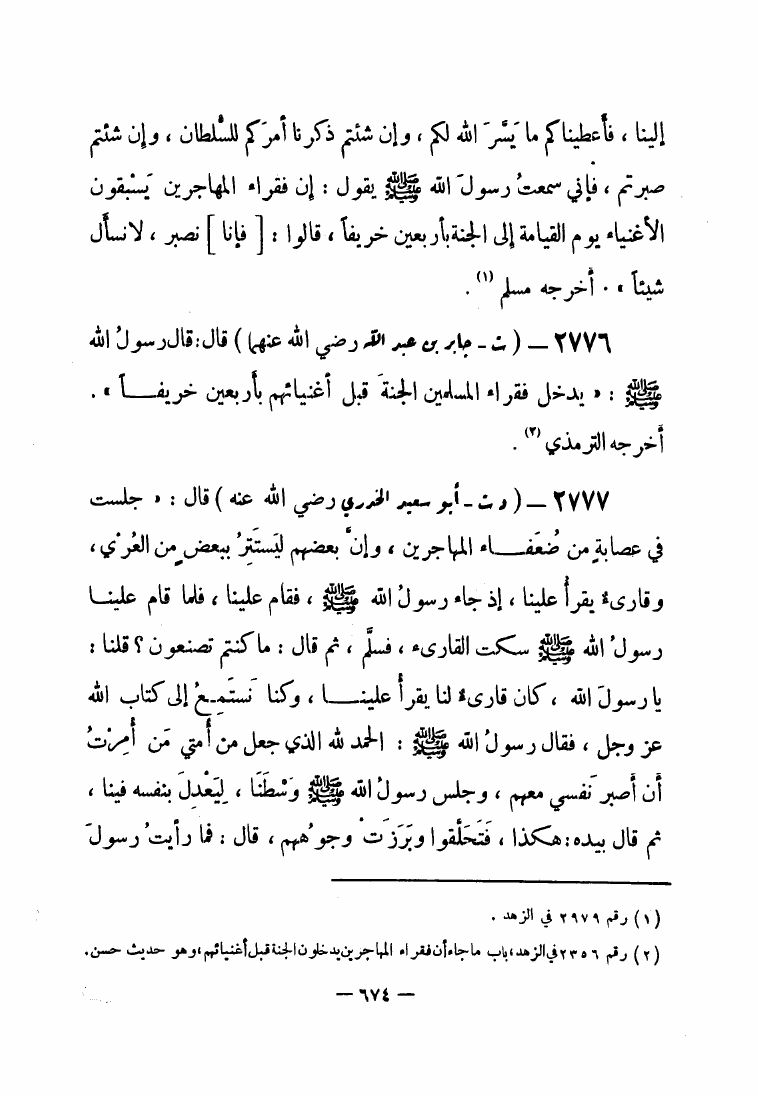 إلينا ، فأعطيناكم ما يَسَّرَ الله لكم ، وإن شئتم ذكرنا أمرَكم للسُّلطان ، وإن شئتم
صبرتم ، فإني سمعتُ رسولَ الله ﷺ يقول : إن فقراء المهاجرين يَسْبقون
الأغنياء يوم القيامة إلى الجنة بأربعين خريفاً ، قالوا : [ فإنا ] نصبر ، لا نسأل
شيئاً » . أخرجه مسلم (١) .
٢٧٧٦ — ( ت - جابر بن عبد الله رضي الله عنهما ) قال : قال رسولُ الله
ﷺ : « يدخل فقراء المسلمين الجنةَ قبل أغنيائهم بأربعين خريفـــاً » .
أخرجه الترمذي (٢) .
٢٧٧٧ — ( د ت - أبو سعيد الخدري رضي الله عنه ) قال : « جلست
في عصابةٍ من ضُعَفـــاء المهاجرين ، وإنَّ بعضهم ليَستَتِرُ ببعضٍ من العُرْي ،
وقارىءٌ يقرأُ علينا ، إذ جاء رسولُ الله ﷺ ، فقام علينا ، فلما قام علينــا
رسولُ الله ﷺ سكت القارىء ، فسلَّم ، ثم قال : ما كنتم تصنعون ؟ قلنا :
يا رسولَ الله ، كان قارىءٌ لنا يقرأ علينــــا ، وكنا نَستَمِـعُ إلى كتاب الله
عز وجل ، فقال رسولُ الله ﷺ : الحمد لله الذي جعل من أمتي مَن أُمِرْتُ
أن أصبرَ نَفسي معهم ، وجلس رسولُ الله ﷺ وَسْطَنَا ، لِيَعْدِلَ بنفسه فينا ،
ثم قال بيده : هكذا ، فَتَحَلَّقوا وبَرَزَتْ وجوهُهم ، قال : فما رأيتُ رسولَ
(١) رقم ٢٩٧٩ في الزهد .
(٢) رقم ٢٣٥٦ في الزهد ، باب ما جاء أن فقراء المهاجرين يدخلون الجنة قبل أغنيائهم ، وهو حديث حسن .
— ٦٧٤ —